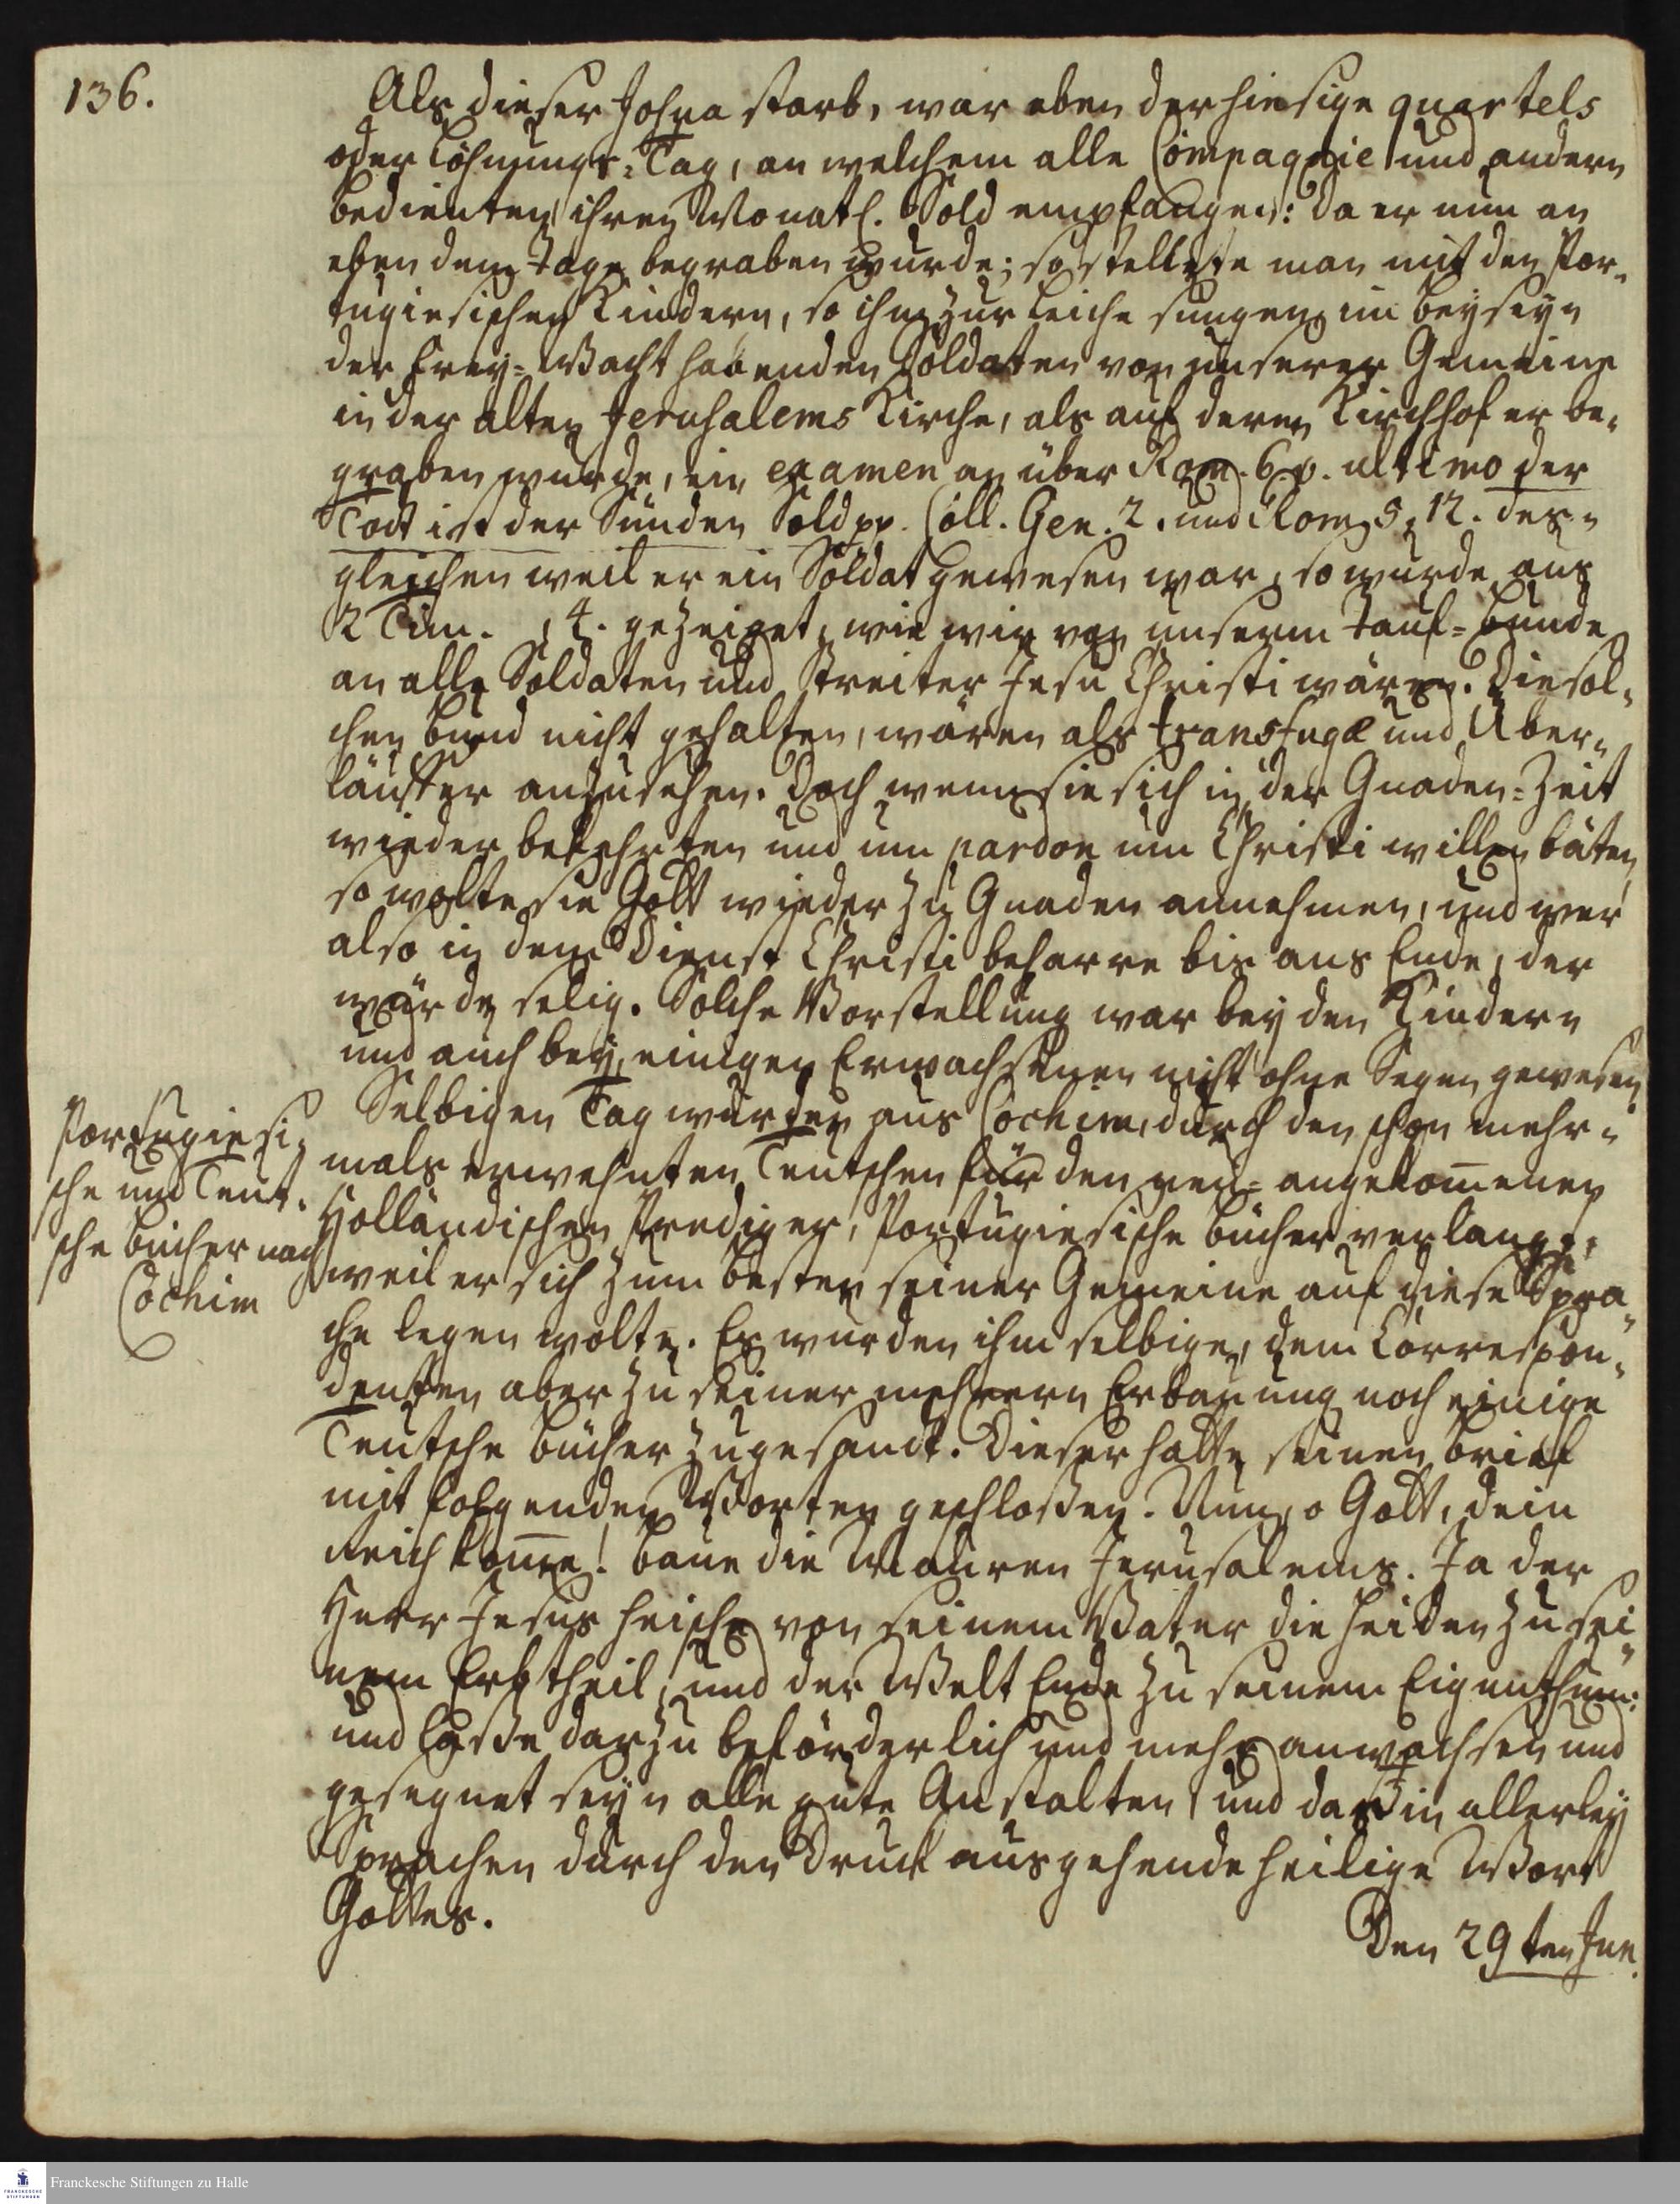 136.
Als dieser Josua starb, war eben der hiesige quartels
oder Löhnungs-Tag, an welchem alle Compagnie und andern
bedienten ihren Monatl. Sold empfangen: da er nun an
eben dem Tage begraben wurde; so stellete man mit den Por-
tugiesischen Kindern, so ihm zur Leiche sungen, im beyseyn
der Frey-Wacht habenden Soldaten von unserer Gemeine
in der alten Jerusalems Kirche, als auf deren Kirchhof er be-
graben wurde, ein examen an über Rom. 6. ultimo der
Todt ist der Sünden Sold pp. Coll. Gen. 2. und Rom 5, 12. des-
gleichen weil er ein Soldat gewesen war, so wurde aus
2 Tim. , 4. gezeiget, wie wir von unserm Tauf-bunde
an alle Soldaten und Streiter Jesu Christi wären. Die sol-
chen bund nicht gehalten, wären als transfugæ und Über-
läuffer anzusehen. Doch wenn sie sich in der Gnaden-Zeit
wieder bekehrten und um pardon um Christi willen bäten,
so wolte sie Gott wieder zu Gnaden annehmen, und wer
also in dem Dienst Christi beharre bis ans Ende, der
würde selig. Solche Vorstellung war bey den Kindern
und auch bey einigen Erwachsenen nicht ohne Segen gewesen
Portugiesi-
sche und Teut-
sche bücher nach
Cochim
Selbigen Tag wurden aus Cochim, durch den schon mehr-
mals erwehnten Teutschen für den neu-angekom̄enen
Holländischen Prediger, Portugiesische bücher verlangt,
weil er sich zum besten seiner Gemeine auf diese Spra-
che legen wolte. Es wurden ihm selbige, dem Correspon-
denten aber zu seiner mehrern Erbauung noch einige
Teutsche bücher zugesandt. Dieser hatte seinen brief
mit folgenden Worten geschlossen. Nun, o Gott, dein
Reich kom̄e! baue die Mauren Jerusalems. Ja der
Herr Jesus heische von seinem Vater die Heiden zu sei-
nem Erbtheil, und der Welt Ende zu seinem Eigenthum:
und lasse darzu beförderlich und mehr anwachsen und
gesegnet seyn alle gute Anstalten und das in allerley
Sprachen durch den Druck ausgehende heilige Wort
Gottes.
Den 29 ten Jun.
Franckesche Stiftungen zu Halle
FRANCKESCHE
STIFTUNGEN